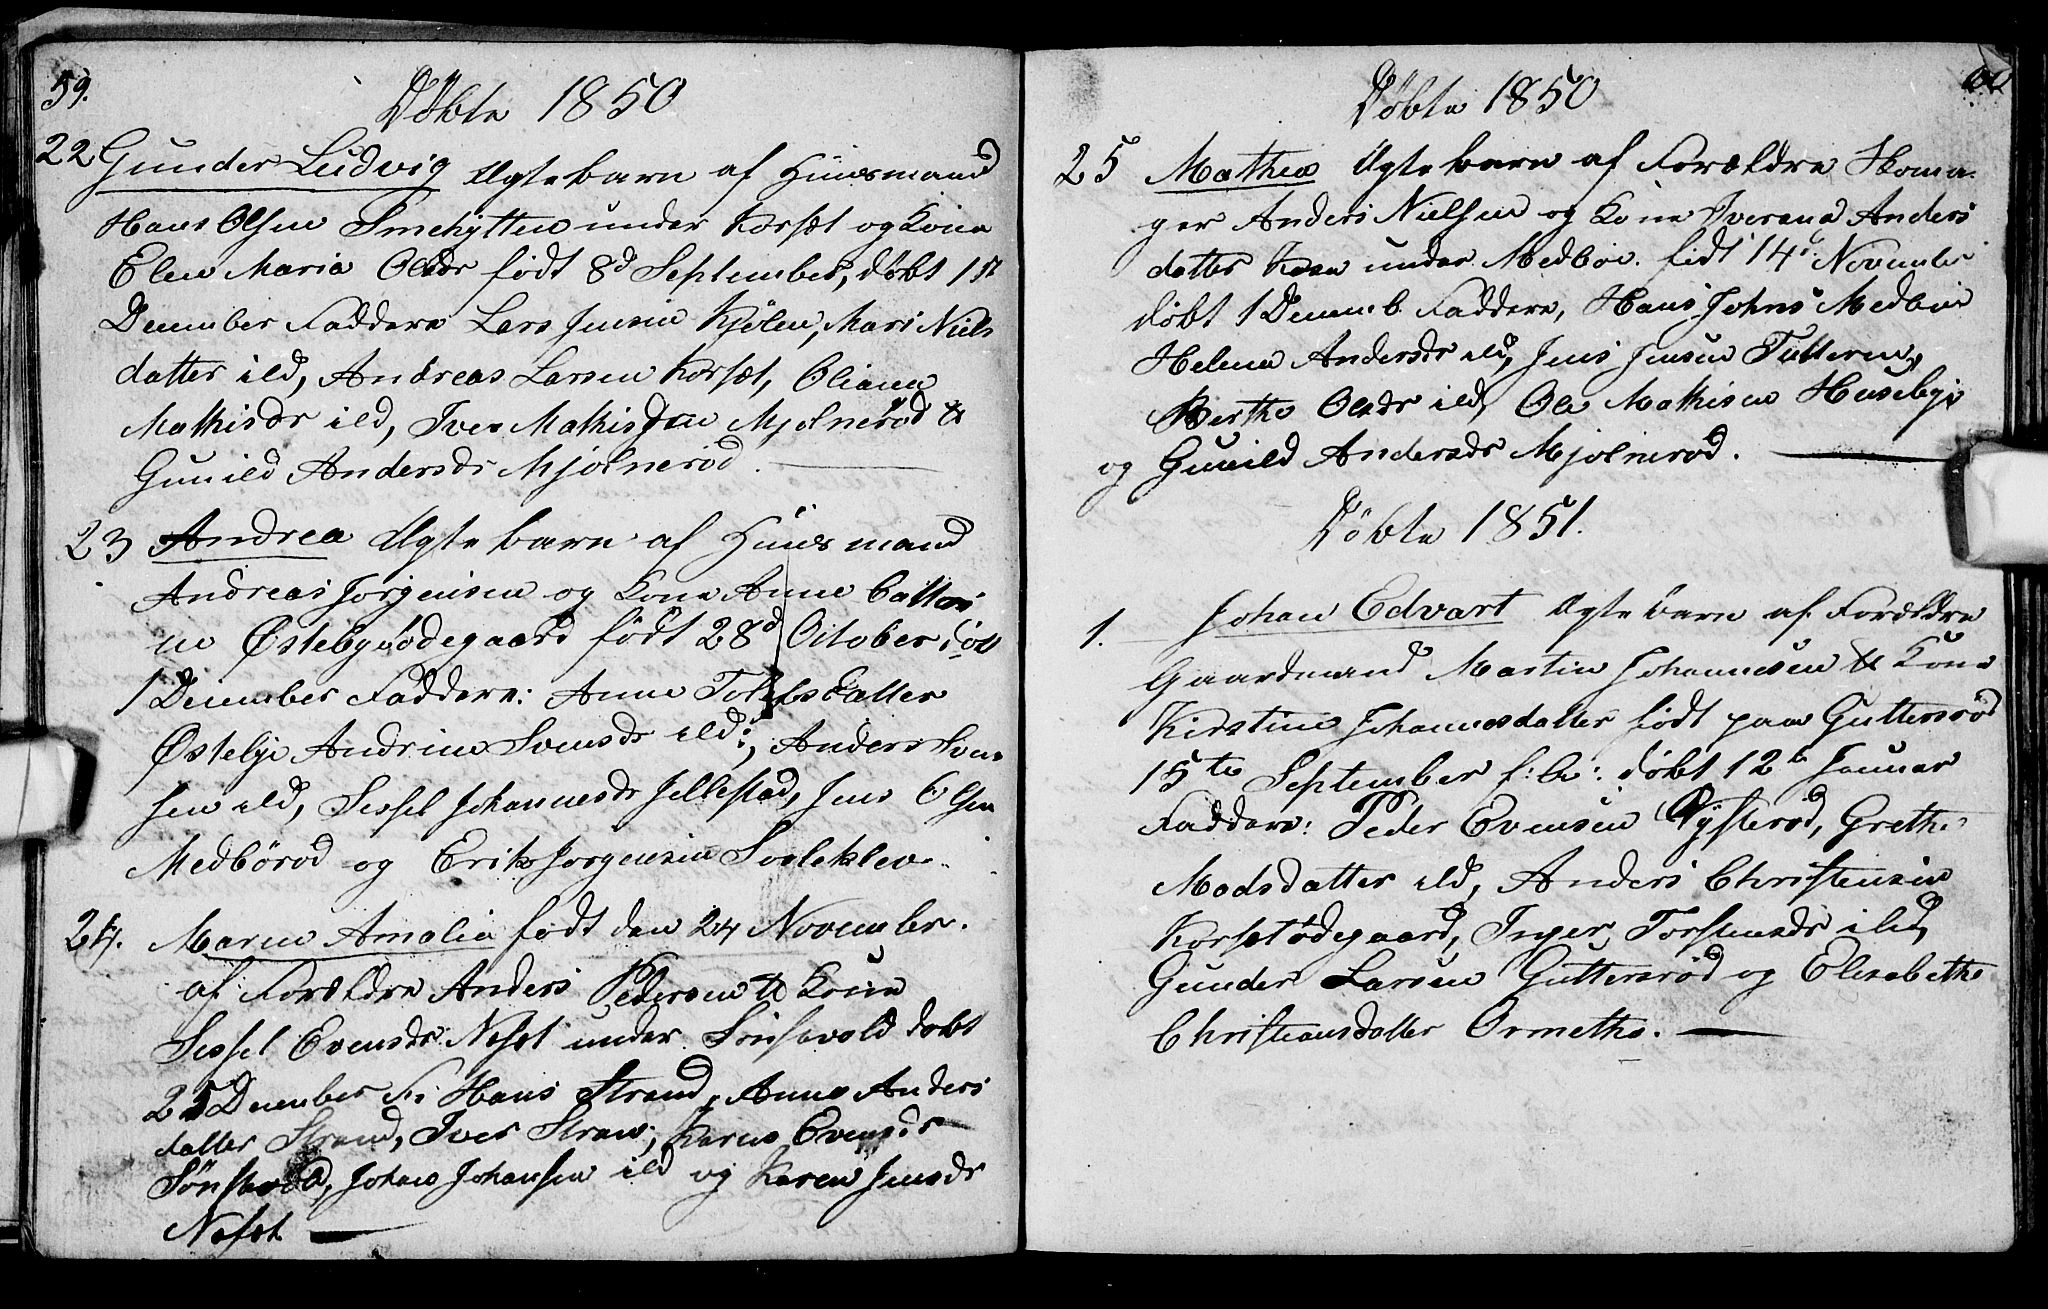 59.
Döbte 1850
22 Gunder Ludvig Ægte barn af Huusmand
Hans Olsen Smehytten under Korsæt og Kone
Elen Maria Olsdr födt 8d September, döbt 1st
December Faddere Lars Jensen Kjölen, Mari Niels
datter ibd, Andreas Larsen Korsæt, Oliana
Mathisdr ibd, Iver Mathissen Mjolneröd &
Gunild Andersdr Mjolneröd.
23 Andrea Ægte barn af Huusmand
Andreas Jorgensen og Kone Anne Cathri
ne Östebyeödegaard födt 28d October döb
1 December Faddere: Anne Tolefsdatter
Östebye Andrine Svensdr ibd:, Anders Sven
sen ibd, Sessel Johannesdr Jellestad, Jens Olsen
Medböröd og Erik Jorgensen Soleklev.
24. Maren Amalia födt den 24 November.
af Forældre Anders Pedersen & Kone
Sessel Evensdr Neset under Sönsevold döbt
25 December F: Hans Strand, Anne Anders
datter Strand, Iver Strand, Karen Evensdr
Sönsevold, Johan Johansen ibd og Karen Jensdr
Neset
60
Döbte 1850
25 Mathea Ægte barn af Forældre Skoma
ger Anders Nielsen og Kone Iverana Anders
datter under Medboe. födt 14d November
döbt 1 Decemb. Faddere, Hans Johns Medboe
Helena Andersdr ibd, Jens Jensen Tutteren,
Berthe Olsdr ibd, Ole Mathisen Husebye
og Gunild Andersdr Mjolneröd.
Döbte 1851.
1. Johan Edvart Ægte barn af Forældre
Gaardmand Martin Johannesen & Kone
Kirstine Johannesdatter födt paa Guttersröd
15te September f: A: döbt 12te Januar
Faddere: Peder Evensen Dysteröd, Grethe
Madsdatter ibd, Anders Christensen
Korsetödegaard, Inger Torstensdr ibd,
Gunder Larsen Gutterseröd og Elisabethe
Christiansdatter Ormethe.